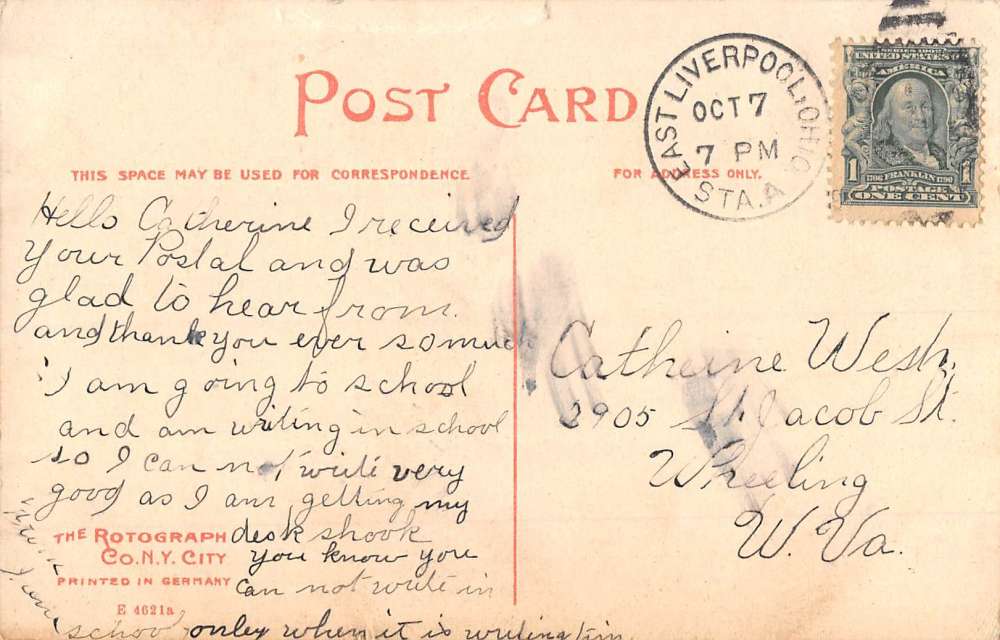 POST CARD
THIS SPACE MAY BE USED FOR CORRESPONDENCE
FOR ADDRESS ONLY.
EAST LIVERPOOL, OHIO
OCT 7
7 PM
STA. A
SERIES 1902
UNITED STATES OF
AMERICA
1 1706 FRANKLIN 1790 1
POSTAGE
ONE CENT
Hello Catherine I received
Your Postal and was
glad to hear from.
and thank you ever so much
I am going to school
and am writing in school
so I can not write very
good as I am getting my
desk shook
you know you
can not write in
school onley when it is writing tim
THE ROTOGRAPH
CO. N.Y. CITY
PRINTED IN GERMANY
E 4621a
Catherine
2905 St. Jacob St.
Wheeling
W. Va.